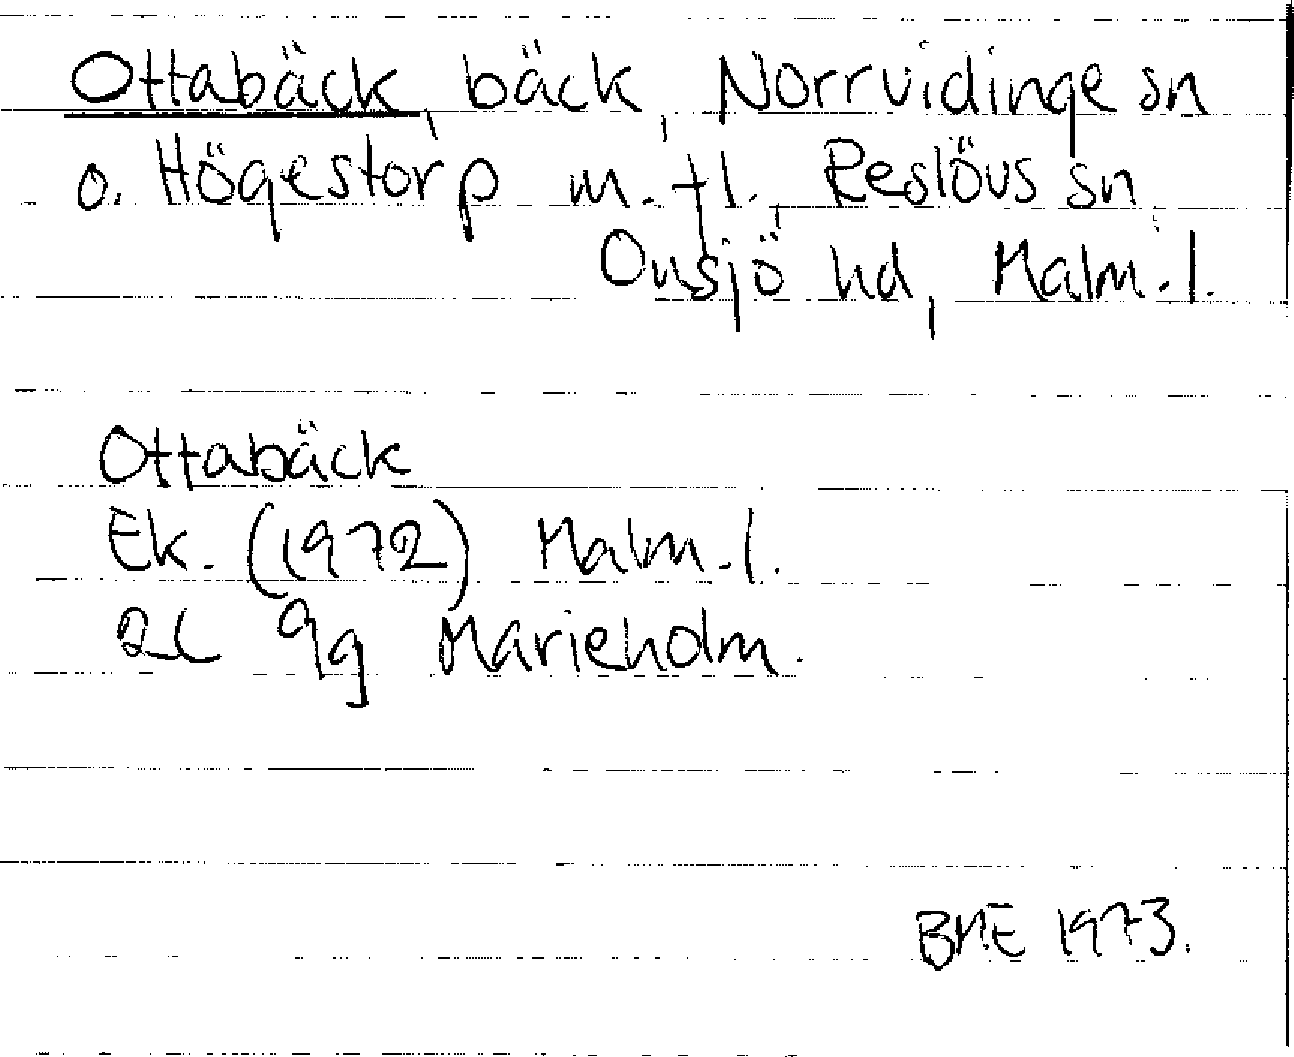 Ottabäck, bäck, Norrvidinge sn
o. Högestorp m. fl. Reslövs sn,
Onsjö hd, Malm. l.
Ottabäck
Ek. (1972) Malm. l.
2C 9g Marieholm.
BME 1973.